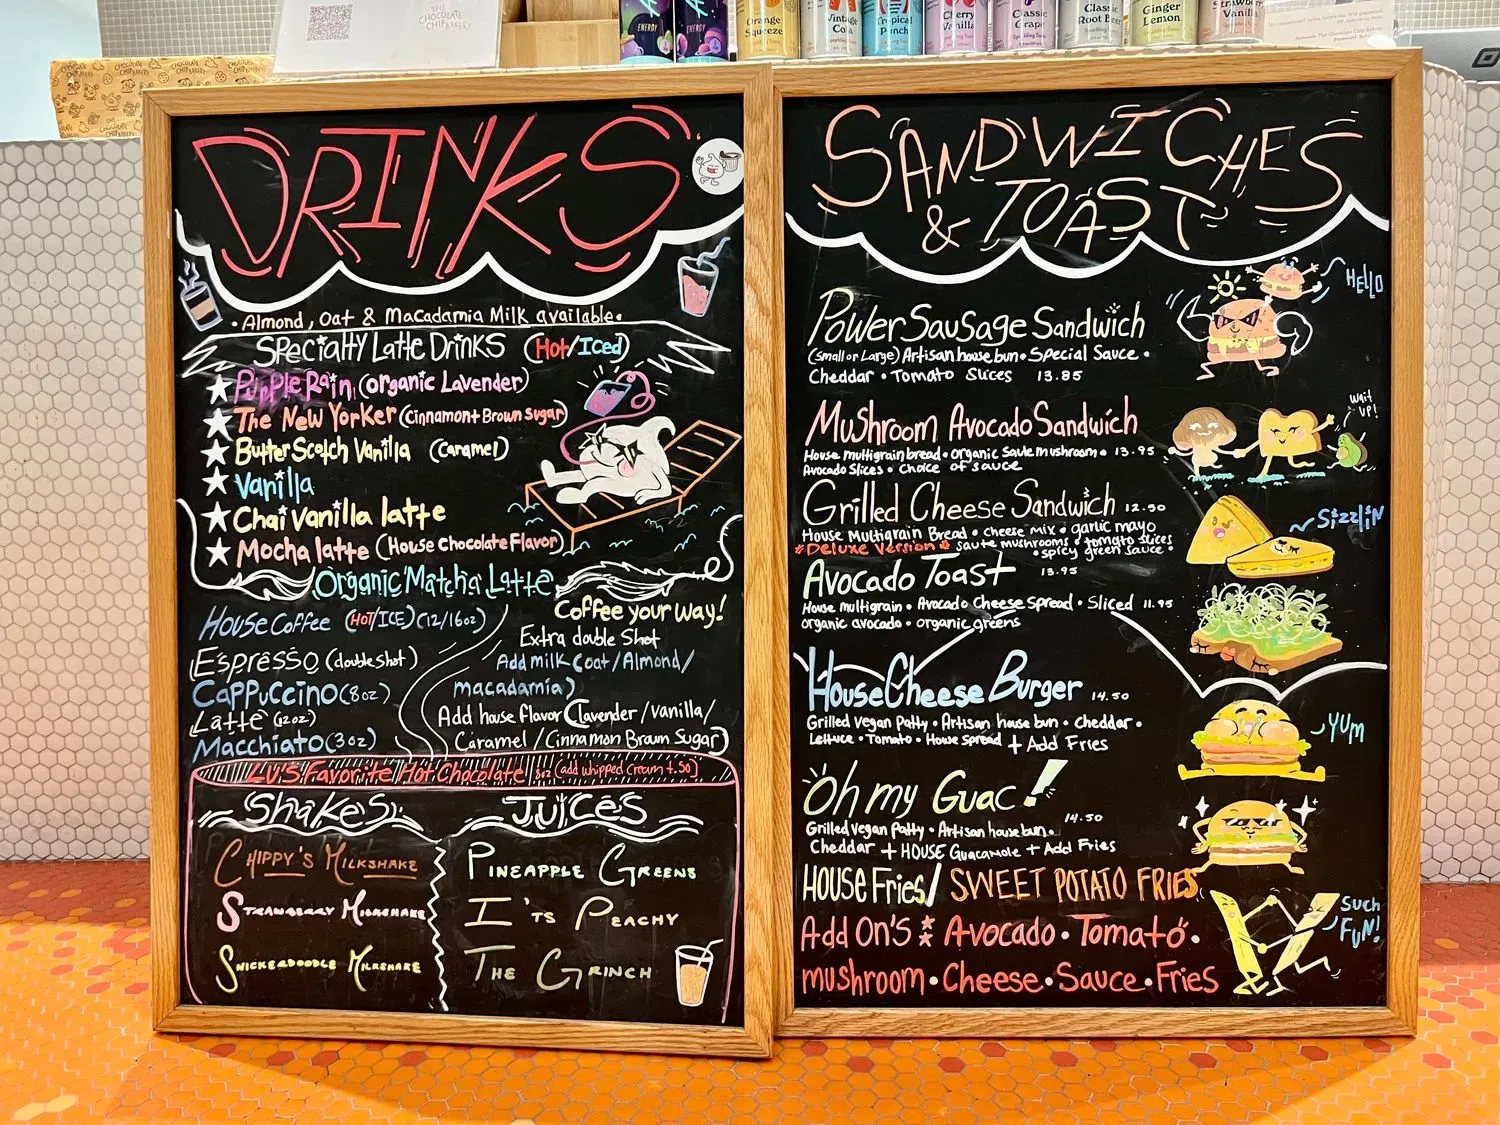 THE
CHOCOLATE
CHIP BAKERY
ENERGY
ENERGY
Orange
Squeeze
Vintage
Cola
Tropical
Punch
Cherry
Vanilla
Classic
Grape
Classic
Root Beer
Ginger
Lemon
Strawberry
Vanilla
DRINKS
• Almond, Oat & Macadamia Milk available •
Specialty Latte Drinks (Hot/Iced)
★ Purple Rain (organic Lavender)
★ The New Yorker (Cinnamon + Brown Sugar)
★ Butter Scotch Vanilla (Caramel)
★ Vanilla
★ Chai Vanilla latte
★ Mocha latte (House Chocolate Flavor)
Organic Matcha Latte
House Coffee (HOT/ICE) (12/16oz)
Espresso (double shot)
Cappuccino (8oz)
Latte (12oz)
Macchiato (3oz)
Coffee your way!
Extra double Shot
Add milk (oat/Almond/
macadamia)
Add house flavor (Lavender/vanilla/
Caramel/Cinnamon Brown Sugar)
Lu's Favoriite Hot Chocolate 8oz (add whipped cream +.50)
Shakes
Chippy's Milkshake
Strawberry Milkshake
Snickerdoodle Milkshake
Juices
Pineapple Greens
I'ts Peachy
The Grinch
SANDWICHES
& TOAST
HELLO
Power Sausage Sandwich
(Small or Large) Artisan house bun • Special Sauce •
Cheddar • Tomato Slices 13.85
Mushroom Avocado Sandwich
House multigrain bread • organic Saute mushroom • 13.95
Avocado Slices • Choice of sauce
wait
up!
Grilled Cheese Sandwich 12.50
House Multigrain Bread • cheese mix • garlic mayo
*Deluxe Version* saute mushrooms • tomato slices
• spicy green sauce •
13.95
SizzliN
Avocado Toast
House multigrain • Avocado Cheese Spread • Sliced 11.95
organic avocado • organic greens
House Cheese Burger 14.50
Grilled Vegan Patty • Artisan house bun • Cheddar •
Lettuce • Tomato • House spread + Add Fries
YUM
Oh my Guac!
Grilled Vegan Patty • Artisan house bun • 14.50
Cheddar + HOUSE Guacamole + Add Fries
HOUSE Fries/ SWEET POTATO FRIES
Add On's ** Avocado • Tomato •
mushroom • Cheese • Sauce • Fries
Such
FUN!